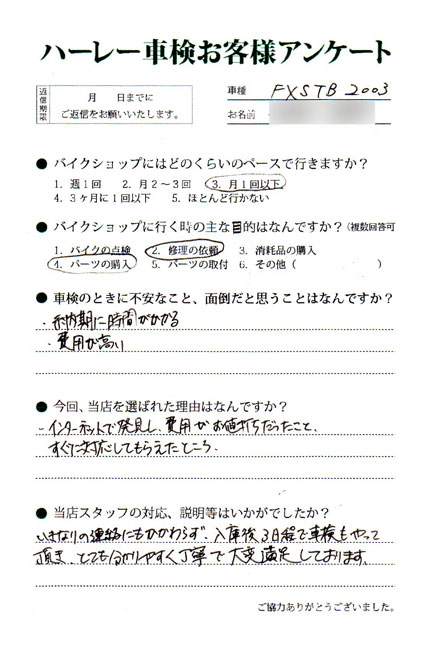 ハーレー車検お客様アンケート
返信期限
月　日までに
ご返信をお願いいたします。
車種 FXSTB 2003
お名前
● バイクショップにはどのくらいのペースで行きますか？
1. 週1回　2. 月2～3回　3. 月1回以下
4. 3ヶ月に1回以下　5. ほとんど行かない
● バイクショップに行く時の主な目的はなんですか？（複数回答可
1. バイクの点検　2. 修理の依頼　3. 消耗品の購入
4. パーツの購入　5. パーツの取付　6. その他（　　　）
● 車検のときに不安なこと、面倒だと思うことはなんですか？
・納期に時間がかかる
・費用が高い
● 今回、当店を選ばれた理由はなんですか？
・インターネットで発見し、費用がお値打ちだったこと、
すぐに対応してもらえたところ。
● 当店スタッフの対応、説明等はいかがでしたか？
いきなりの連絡にもかかわらず、入庫後3日程で車検もやって
頂き、とても分かりやすく丁寧で大変満足しております。
ご協力ありがとうございました。